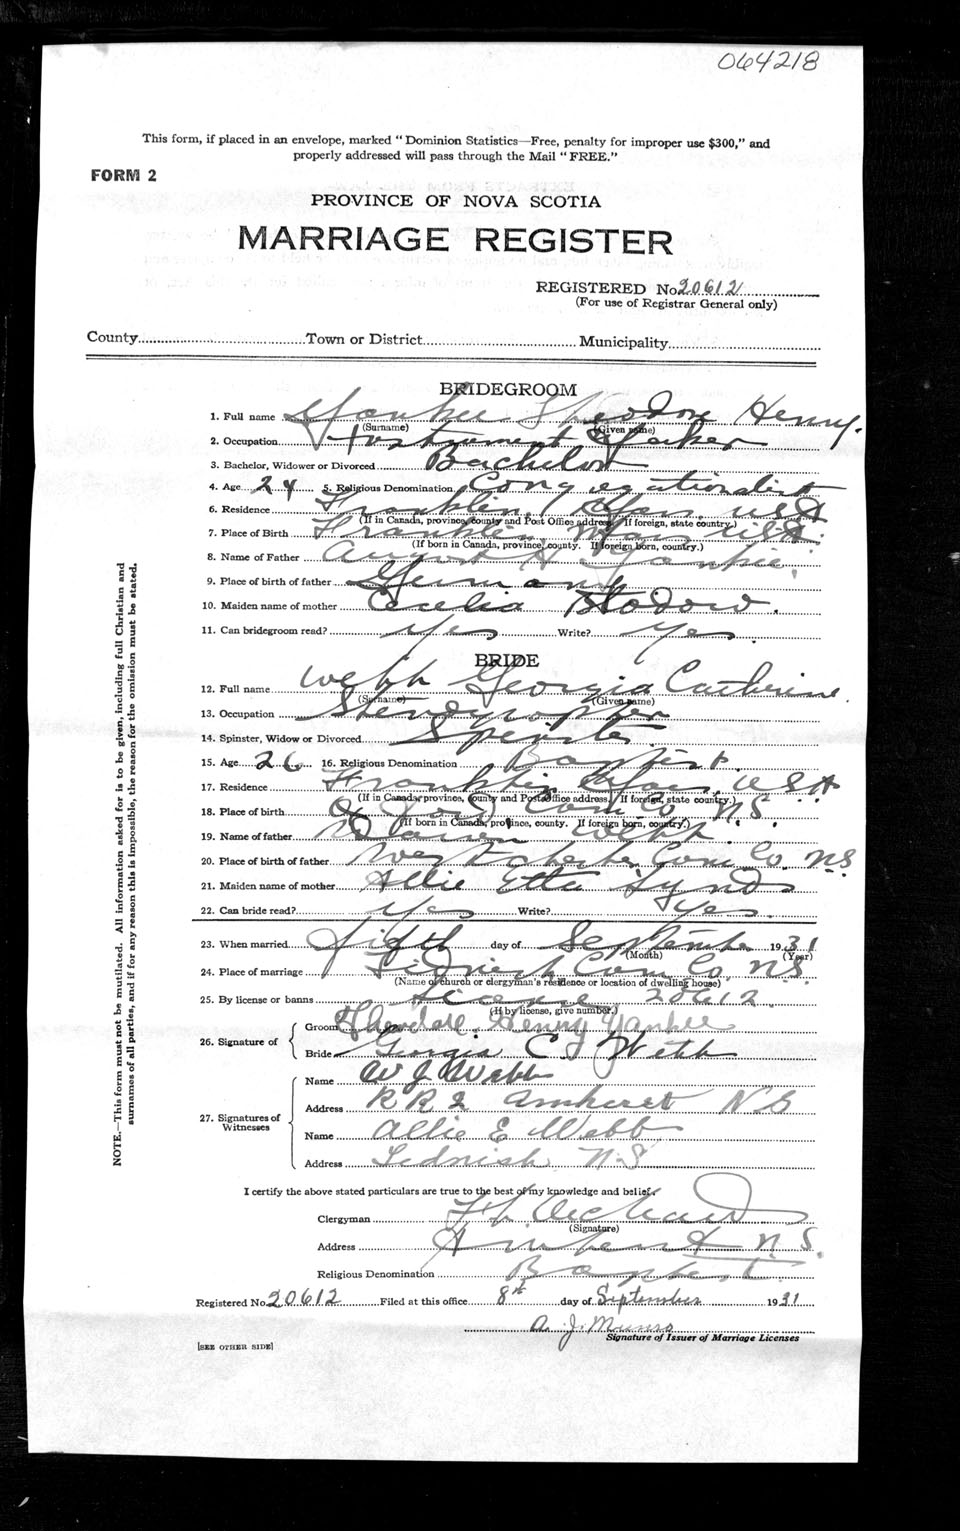 064218
This form, if placed in an envelope, marked "Dominion Statistics—Free, penalty for improper use $300," and
properly addressed will pass through the Mail "FREE."
FORM 2
PROVINCE OF NOVA SCOTIA
MARRIAGE REGISTER
REGISTERED No. 20612
(For use of Registrar General only)
County Town or District Municipality
BRIDEGROOM
1. Full name Yankee Theodore Henry.
(Surname) (Given name)
2. Occupation Instrument Maker
3. Bachelor, Widower or Divorced Bachelor
4. Age 24 5. Religious Denomination Congregationalist
6. Residence Franklin, Mass. USA
(If in Canada, province, county and Post Office address. If foreign, state country.)
7. Place of Birth Franklin, Mass USA.
(If born in Canada, province, county. If foreign born, country.)
8. Name of Father August H Yankee.
9. Place of birth of father Germany
10. Maiden name of mother Cecelia
11. Can bridegroom read? Yes Write? Yes.
BRIDE
12. Full name Webb Georgia Catherine.
(Surname) (Given name)
13. Occupation Stenographer
14. Spinster, Widow or Divorced Spinster
15. Age 26 16. Religious Denomination Baptist.
17. Residence Franklin Mass, USA
(If in Canada, province, county and Post Office address. If foreign, state country.)
18. Place of birth Com. Co NS.
(If born in Canada, province, county. If foreign born, country.)
19. Name of father Webb.
20. Place of birth of father Westchester Com. Co. NS
21. Maiden name of mother Allie Etta Lynds
22. Can bride read? Yes Write? Yes.
23. When married fifth day of September 1931
(Month) (Year)
24. Place of marriage Tidnish Com Co, NS.
(Name of church or clergyman's residence or location of dwelling house)
25. By license or banns License 20612.
(If by license, give number.)
26. Signature of
Groom Theodore Henry Yankee
Bride Georgia C. Webb
27. Signatures of Witnesses
Name W J Webb
Address R R 2 Amherst N S
Name Allie E Webb
Address Tidnish N.S.
I certify the above stated particulars are true to the best of my knowledge and belief.
Clergyman
(Signature)
Address Amherst N.S.
Religious Denomination Baptist
Registered No. 20612 Filed at this office 8th day of September 1931
A. J. Munro
Signature of Issuer of Marriage Licenses
[SEE OTHER SIDE]
NOTE.—This form must not be mutilated. All information asked for is to be given, including full Christian and
surnames of all parties, and if for any reason this is impossible, the reason for the omission must be stated.